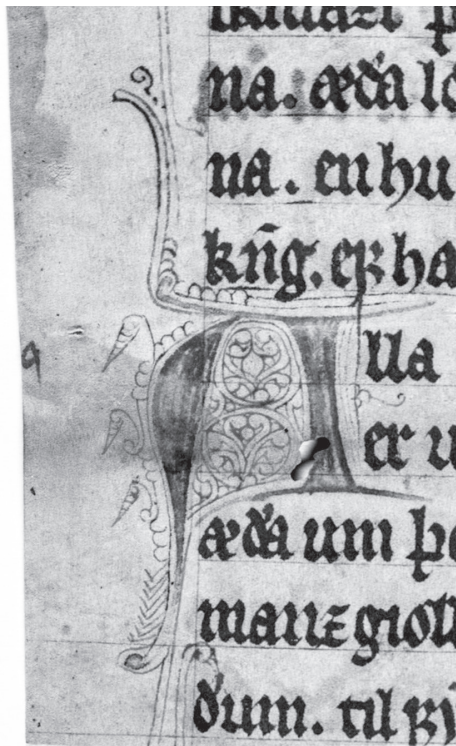 na. æða lo
na. en hu
kn̄g. er ha
Alla
er u
æða um þe
manz gioll
ðum. til